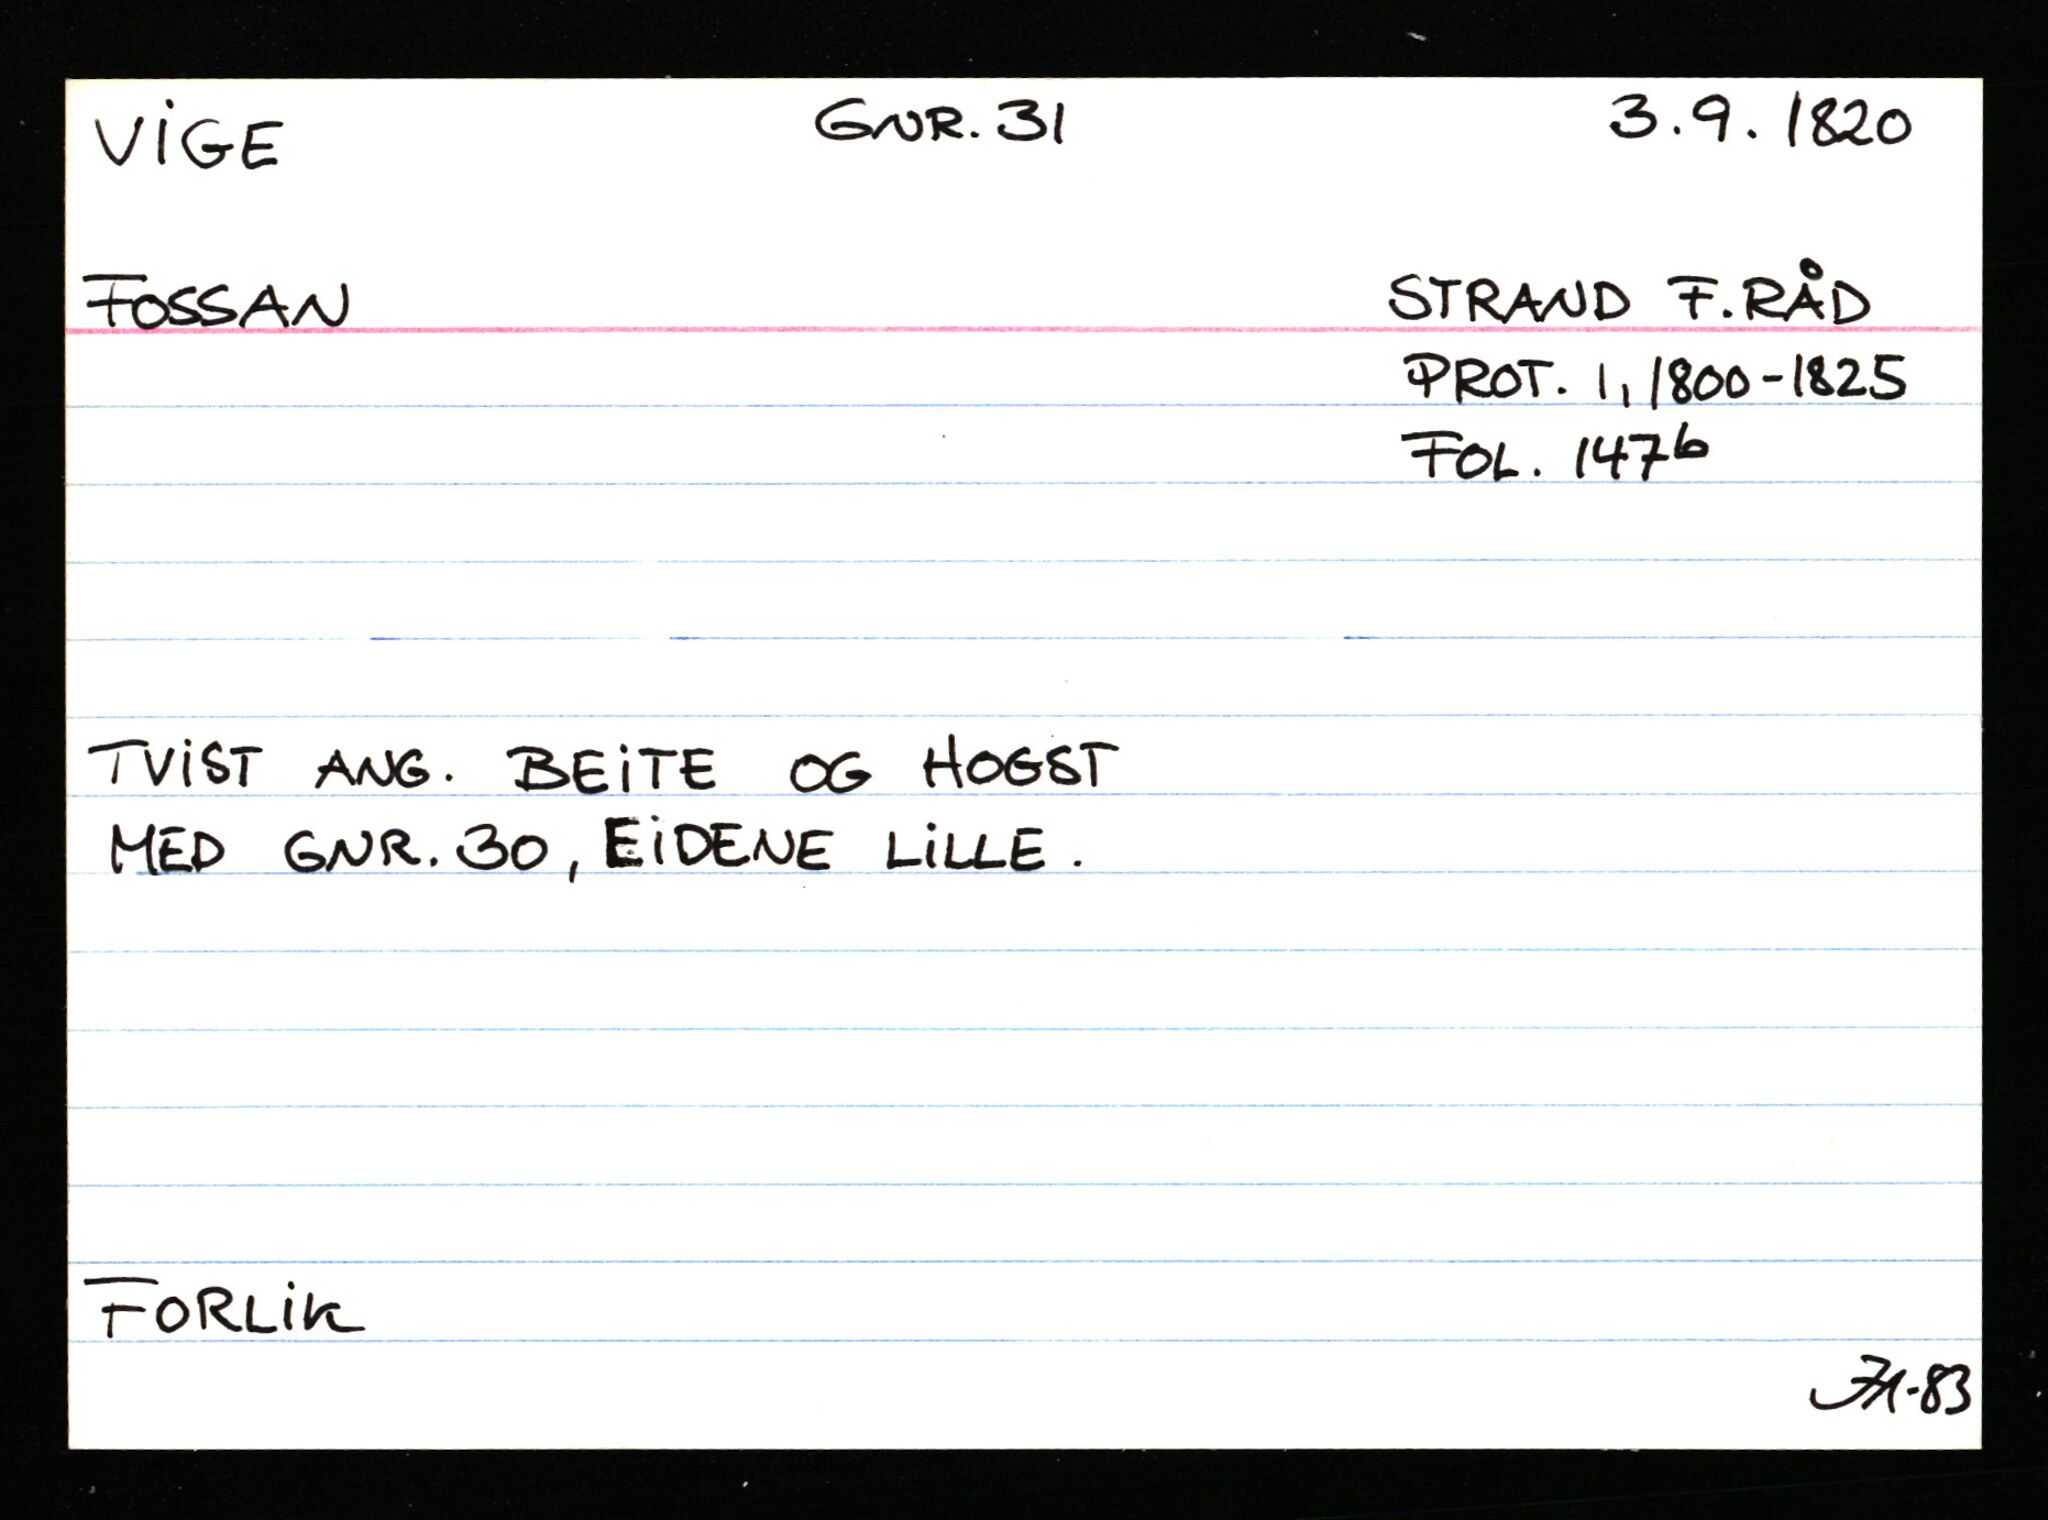 VIGE GNR. 31 3.9. 1820
FOSSAN STRAND F.RÅD
PROT. 1, 1800-1825
FOL. 147b
TVIST ANG. BEITE OG HOGST
MED GNR. 30, EIDENE LILLE.
FORLIK
-83